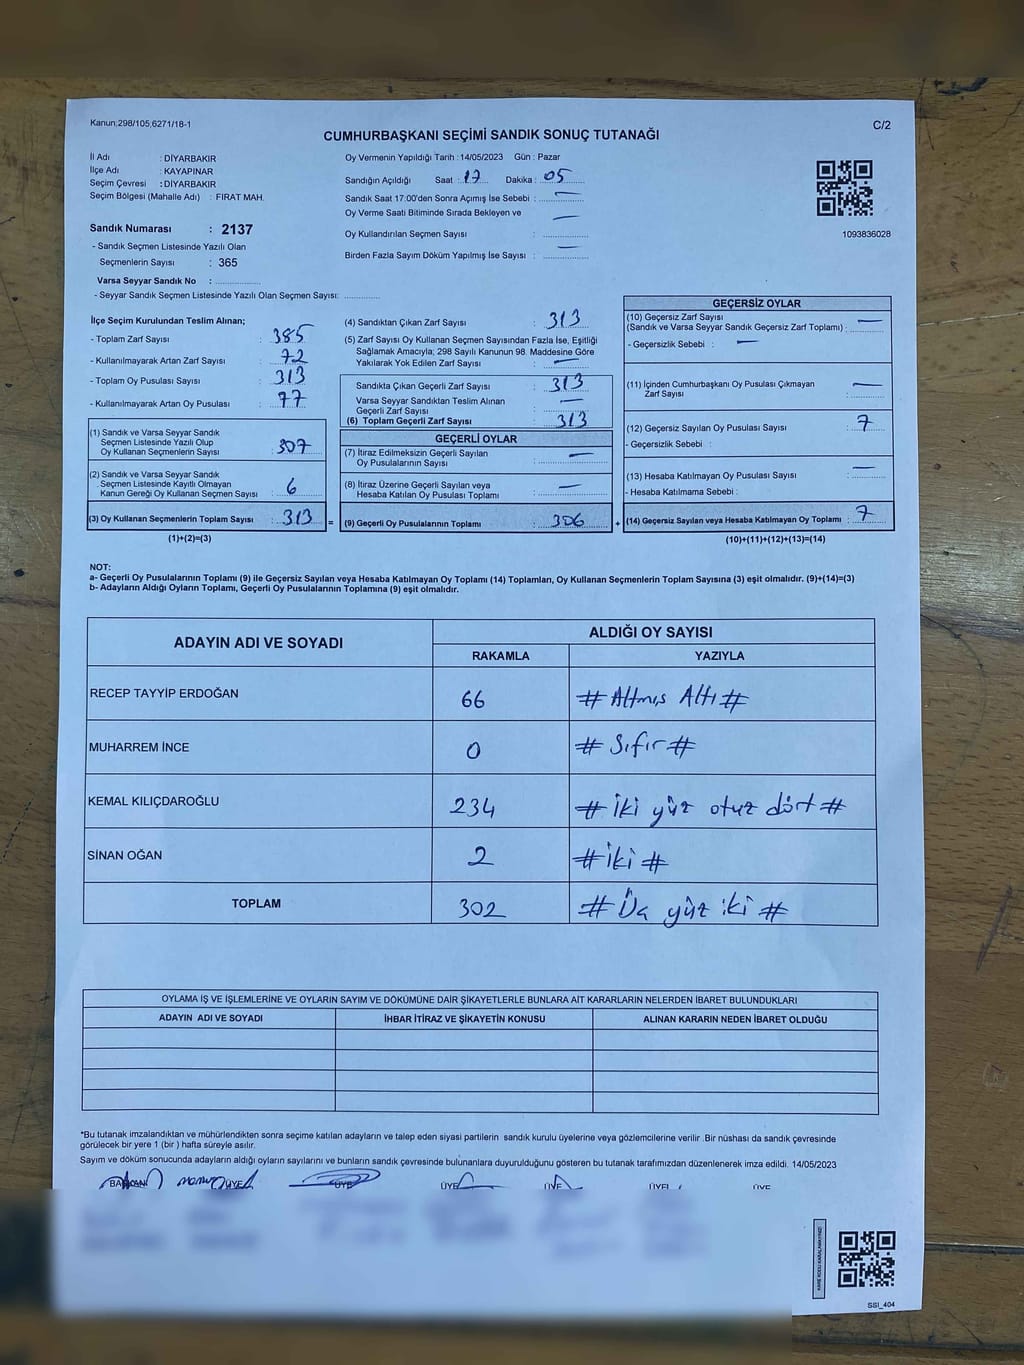 Kanun;298/105;6271/18-1
C/2
CUMHURBAŞKANI SEÇİMİ SANDIK SONUÇ TUTANAĞI
İl Adı : DİYARBAKIR
İlçe Adı : KAYAPINAR
Seçim Çevresi : DİYARBAKIR
Seçim Bölgesi (Mahalle Adı) : FIRAT MAH.
Sandık Numarası : 2137
- Sandık Seçmen Listesinde Yazılı Olan
Seçmenlerin Sayısı : 365
Varsa Seyyar Sandık No :
- Seyyar Sandık Seçmen Listesinde Yazılı Olan Seçmen Sayısı:
Oy Vermenin Yapıldığı Tarih : 14/05/2023 Gün : Pazar
Sandığın Açıldığı Saat : 17 Dakika : 05
Sandık Saat 17:00'den Sonra Açımış İse Sebebi : —
Oy Verme Saati Bitiminde Sırada Bekleyen ve
Oy Kullandırılan Seçmen Sayısı : —
Birden Fazla Sayım Döküm Yapılmış İse Sayısı : —
1093836028
İlçe Seçim Kurulundan Teslim Alınan;
- Toplam Zarf Sayısı : 385
- Kullanılmayarak Artan Zarf Sayısı : 72
- Toplam Oy Pusulası Sayısı : 313
- Kullanılmayarak Artan Oy Pusulası : 77
(1) Sandık ve Varsa Seyyar Sandık
Seçmen Listesinde Yazılı Olup
Oy Kullanan Seçmenlerin Sayısı : 307
(2) Sandık ve Varsa Seyyar Sandık
Seçmen Listesinde Kayıtlı Olmayan
Kanun Gereği Oy Kullanan Seçmen Sayısı : 6
(3) Oy Kullanan Seçmenlerin Toplam Sayısı : 313 =
(1)+(2)=(3)
(4) Sandıktan Çıkan Zarf Sayısı : 313
(5) Zarf Sayısı Oy Kullanan Seçmen Sayısından Fazla İse, Eşitliği
Sağlamak Amacıyla; 298 Sayılı Kanunun 98. Maddesine Göre
Yakılarak Yok Edilen Zarf Sayısı : —
Sandıkta Çıkan Geçerli Zarf Sayısı : 313
Varsa Seyyar Sandıktan Teslim Alınan
Geçerli Zarf Sayısı : —
(6) Toplam Geçerli Zarf Sayısı : 313
GEÇERLİ OYLAR
(7) İtiraz Edilmeksizin Geçerli Sayılan
Oy Pusulalarının Sayısı : —
(8) İtiraz Üzerine Geçerli Sayılan veya
Hesaba Katılan Oy Pusulası Toplamı : —
(9) Geçerli Oy Pusulalarının Toplamı : 306 +
GEÇERSİZ OYLAR
(10) Geçersiz Zarf Sayısı
(Sandık ve Varsa Seyyar Sandık Geçersiz Zarf Toplamı) : —
- Geçersizlik Sebebi : —
(11) İçinden Cumhurbaşkanı Oy Pusulası Çıkmayan
Zarf Sayısı : —
(12) Geçersiz Sayılan Oy Pusulası Sayısı : 7
- Geçersizlik Sebebi :
(13) Hesaba Katılmayan Oy Pusulası Sayısı : —
- Hesaba Katılmama Sebebi :
(14) Geçersiz Sayılan veya Hesaba Katılmayan Oy Toplamı : 7
(10)+(11)+(12)+(13)=(14)
NOT:
a- Geçerli Oy Pusulalarının Toplamı (9) ile Geçersiz Sayılan veya Hesaba Katılmayan Oy Toplamı (14) Toplamları, Oy Kullanan Seçmenlerin Toplam Sayısına (3) eşit olmalıdır. (9)+(14)=(3)
b- Adayların Aldığı Oyların Toplamı, Geçerli Oy Pusulalarının Toplamına (9) eşit olmalıdır.
ADAYIN ADI VE SOYADI
ALDIĞI OY SAYISI
RAKAMLA YAZIYLA
RECEP TAYYİP ERDOĞAN 66 # Altmış Altı #
MUHARREM İNCE 0 # Sıfır #
KEMAL KILIÇDAROĞLU 234 # İki yüz otuz dört #
SİNAN OĞAN 2 # İki #
TOPLAM 302 # yüz iki #
OYLAMA İŞ VE İŞLEMLERİNE VE OYLARIN SAYIM VE DÖKÜMÜNE DAİR ŞİKAYETLERLE BUNLARA AİT KARARLARIN NELERDEN İBARET BULUNDUKLARI
ADAYIN ADI VE SOYADI İHBAR İTİRAZ VE ŞİKAYETİN KONUSU ALINAN KARARIN NEDEN İBARET OLDUĞU
*Bu tutanak imzalandıktan ve mühürlendikten sonra seçime katılan adayların ve talep eden siyasi partilerin sandık kurulu üyelerine veya gözlemcilerine verilir .Bir nüshası da sandık çevresinde
görülecek bir yere 1 (bir ) hafta süreyle asılır.
Sayım ve döküm sonucunda adayların aldığı oyların sayılarını ve bunların sandık çevresinde bulunanlara duyurulduğunu gösteren bu tutanak tarafımızdan düzenlenerek imza edildi. 14/05/2023
BAŞKAN ÜYE ÜYE ÜYE ÜYE ÜYE ÜYE
SSI_404